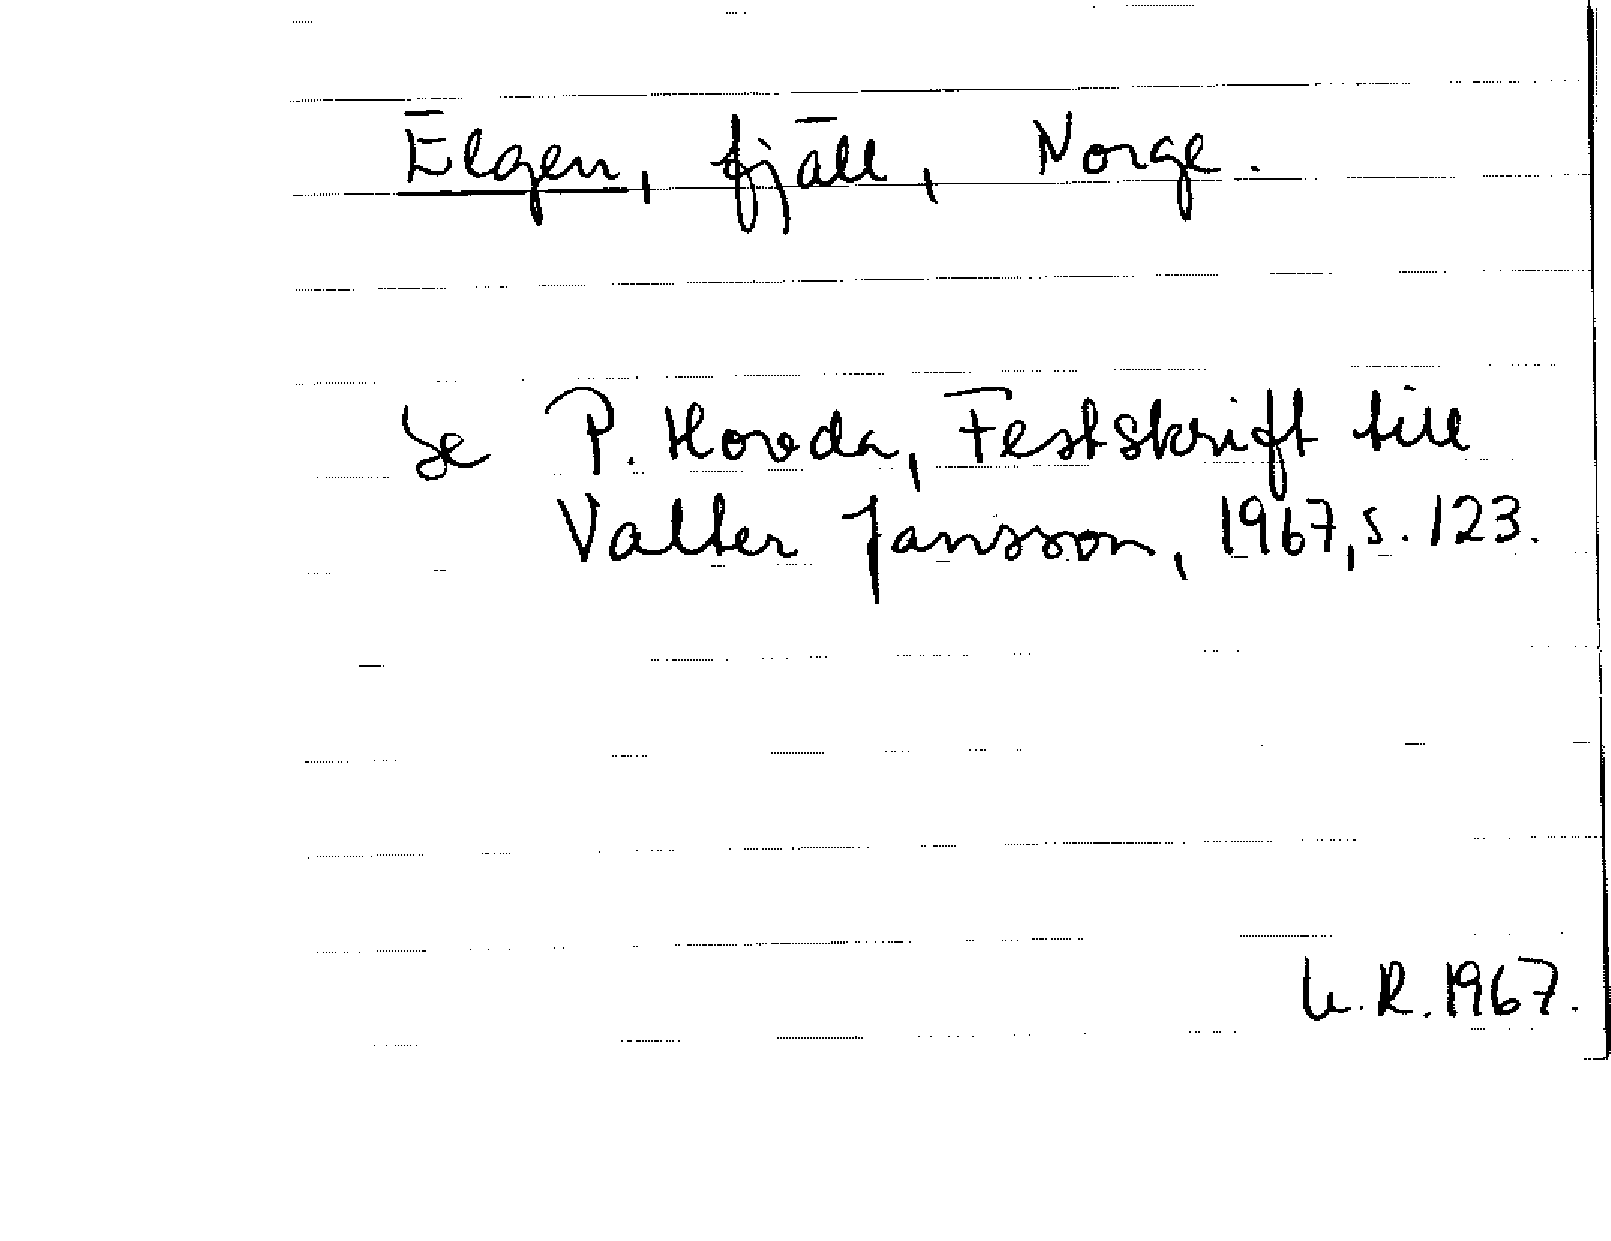 Elgen, fjäll, Norge.
Se P. Hovda, Festskrift till
Valter Jansson, 1967, s. 123.
L. R. 1967.